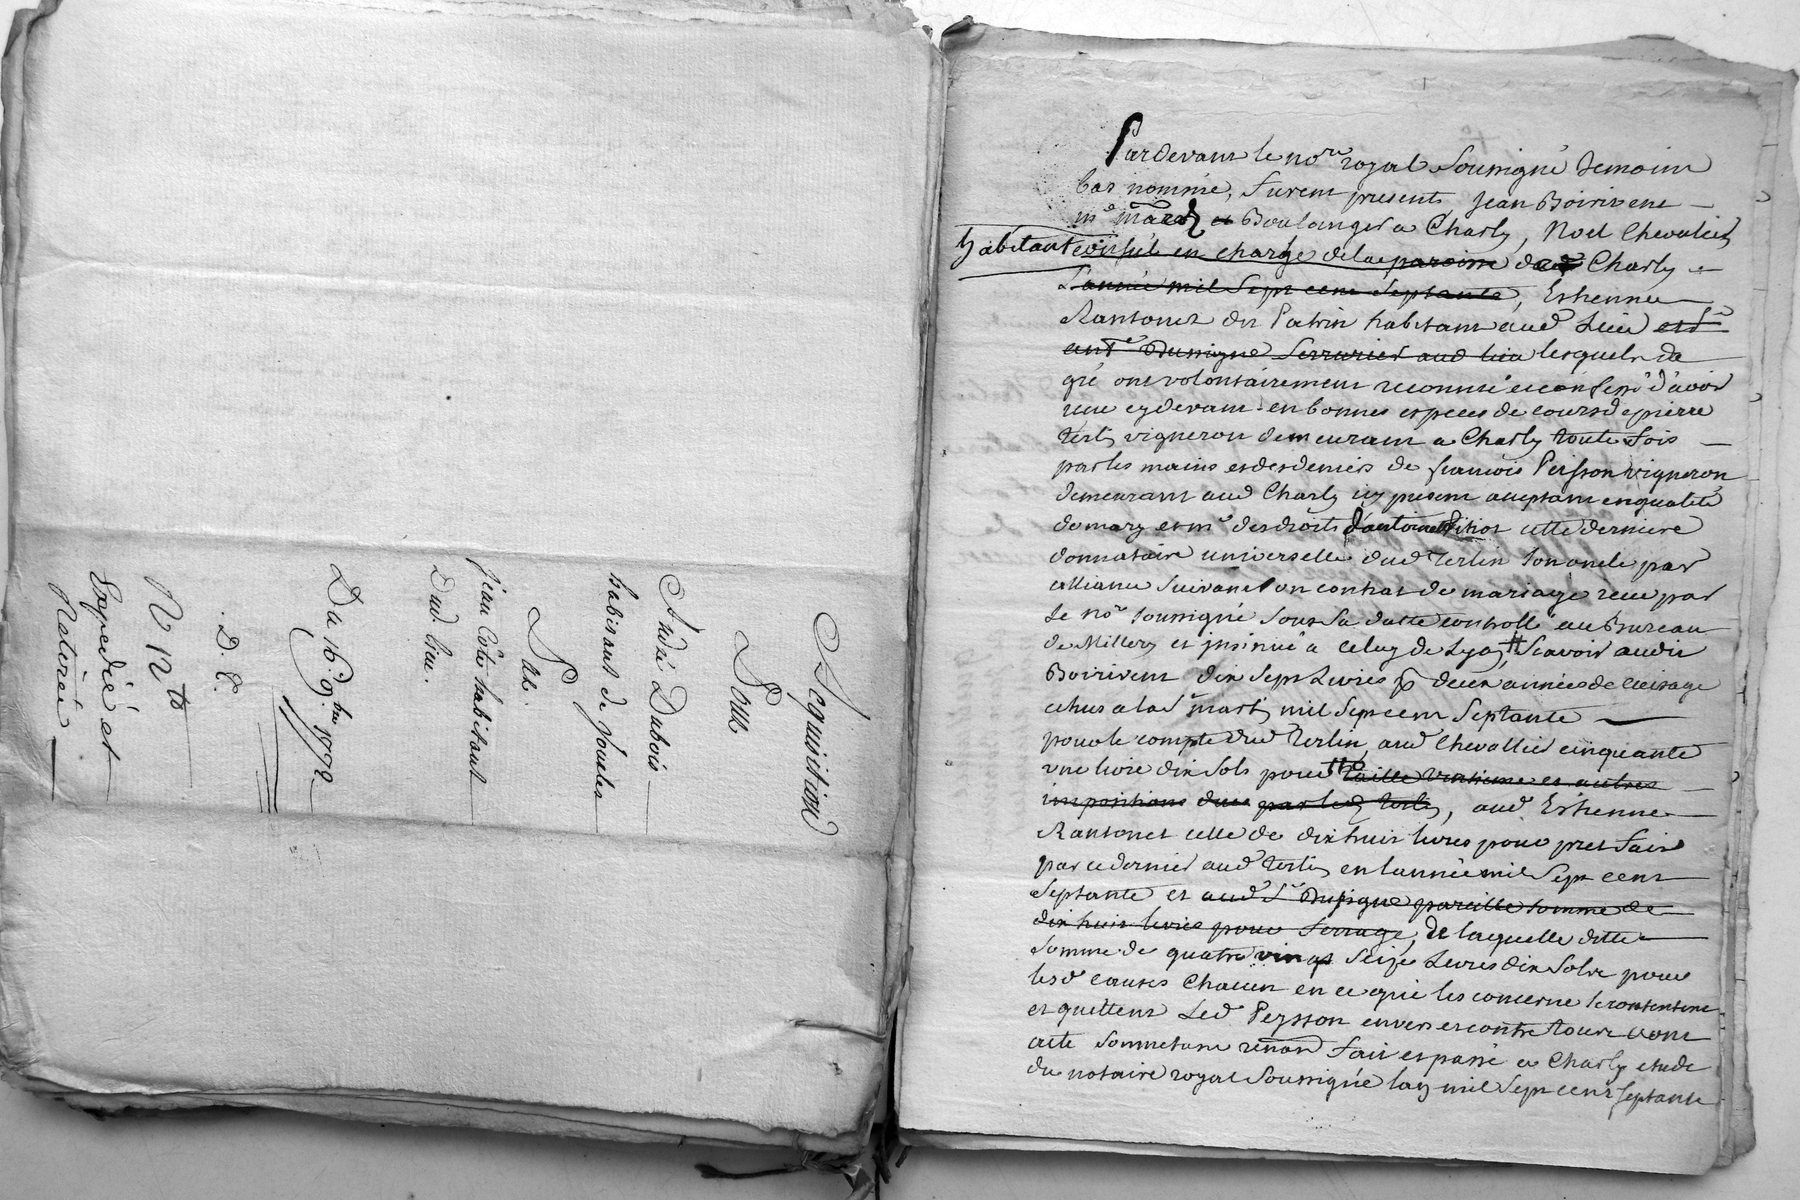 Acquisition
Pour
André Dubois
habitant de Joules
Par
Jean Côte habitant
Dud. lieu.
Du 16 9bre 1772
D. C.
N 12to
Expedié et
Retirée
Pardevant le nore royal Soussigné temoins
bas nommé, furent presents Jean Boiriven
me mard et Boulanger a Charly, Noel Chevalier
habitant consul en charge de la paroisse de Charly
L'année mil Sept cent Septante, Estienne
Rantonet dit Patrin habitant aud Lieu et Sr
ante Dussigne Serrurier aud lieu lesquels de
gré ont volontairement reconnu et confessé d'avoir
reçu cydevant en bonnes especes de cours de pierre
Terlin vigneron demeurant a Charly toute fois
par les mains et des deniers de francois Peisson vigneron
demeurant aud Charly icy present acceptant en qualité
de mary et me des droits d'antoinette Pitiot cette derniere
donnataire universelle dud Terlin son oncle par
alliance Suivant son contrat de mariage recu par
le nore soussigné sous sa datte controllé au Bureau
de Millery et insinué a celuy de Lyon, Scavoir audit
Boiriven dix sept Livres pr deux années de
echus a la St martin mil Sept cent Septante
pour le compte dud Terlin, aud Chevallier cinquante
une livre dix sols pour taille vintieme et autres
impositions dues par led Terlin, aud Estienne
Rantonet celle de dix huit livres pour pret fait
par ce dernier aud Terlin en l'année mil Sept cent
Septante et aud Sr Dussigne pareille somme de
dix huit livres pour Serrage, de laquelle ditte
Somme de quatre vingt Seize Livres dix Sols pour
lesd causes Chacun en ce qui les concerne se contentent
et quittent Led Peysson envers et contre tous dont
acte Soumettant renon fait et passé a Charly etude
du notaire royal Soussigné l'an mil Sept cent Septante